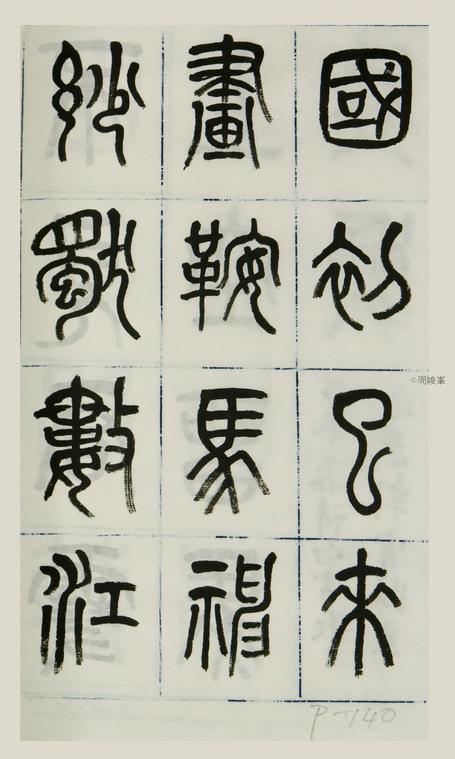 國初已來
畫鞍馬神
妙獨數江
©周峻峯